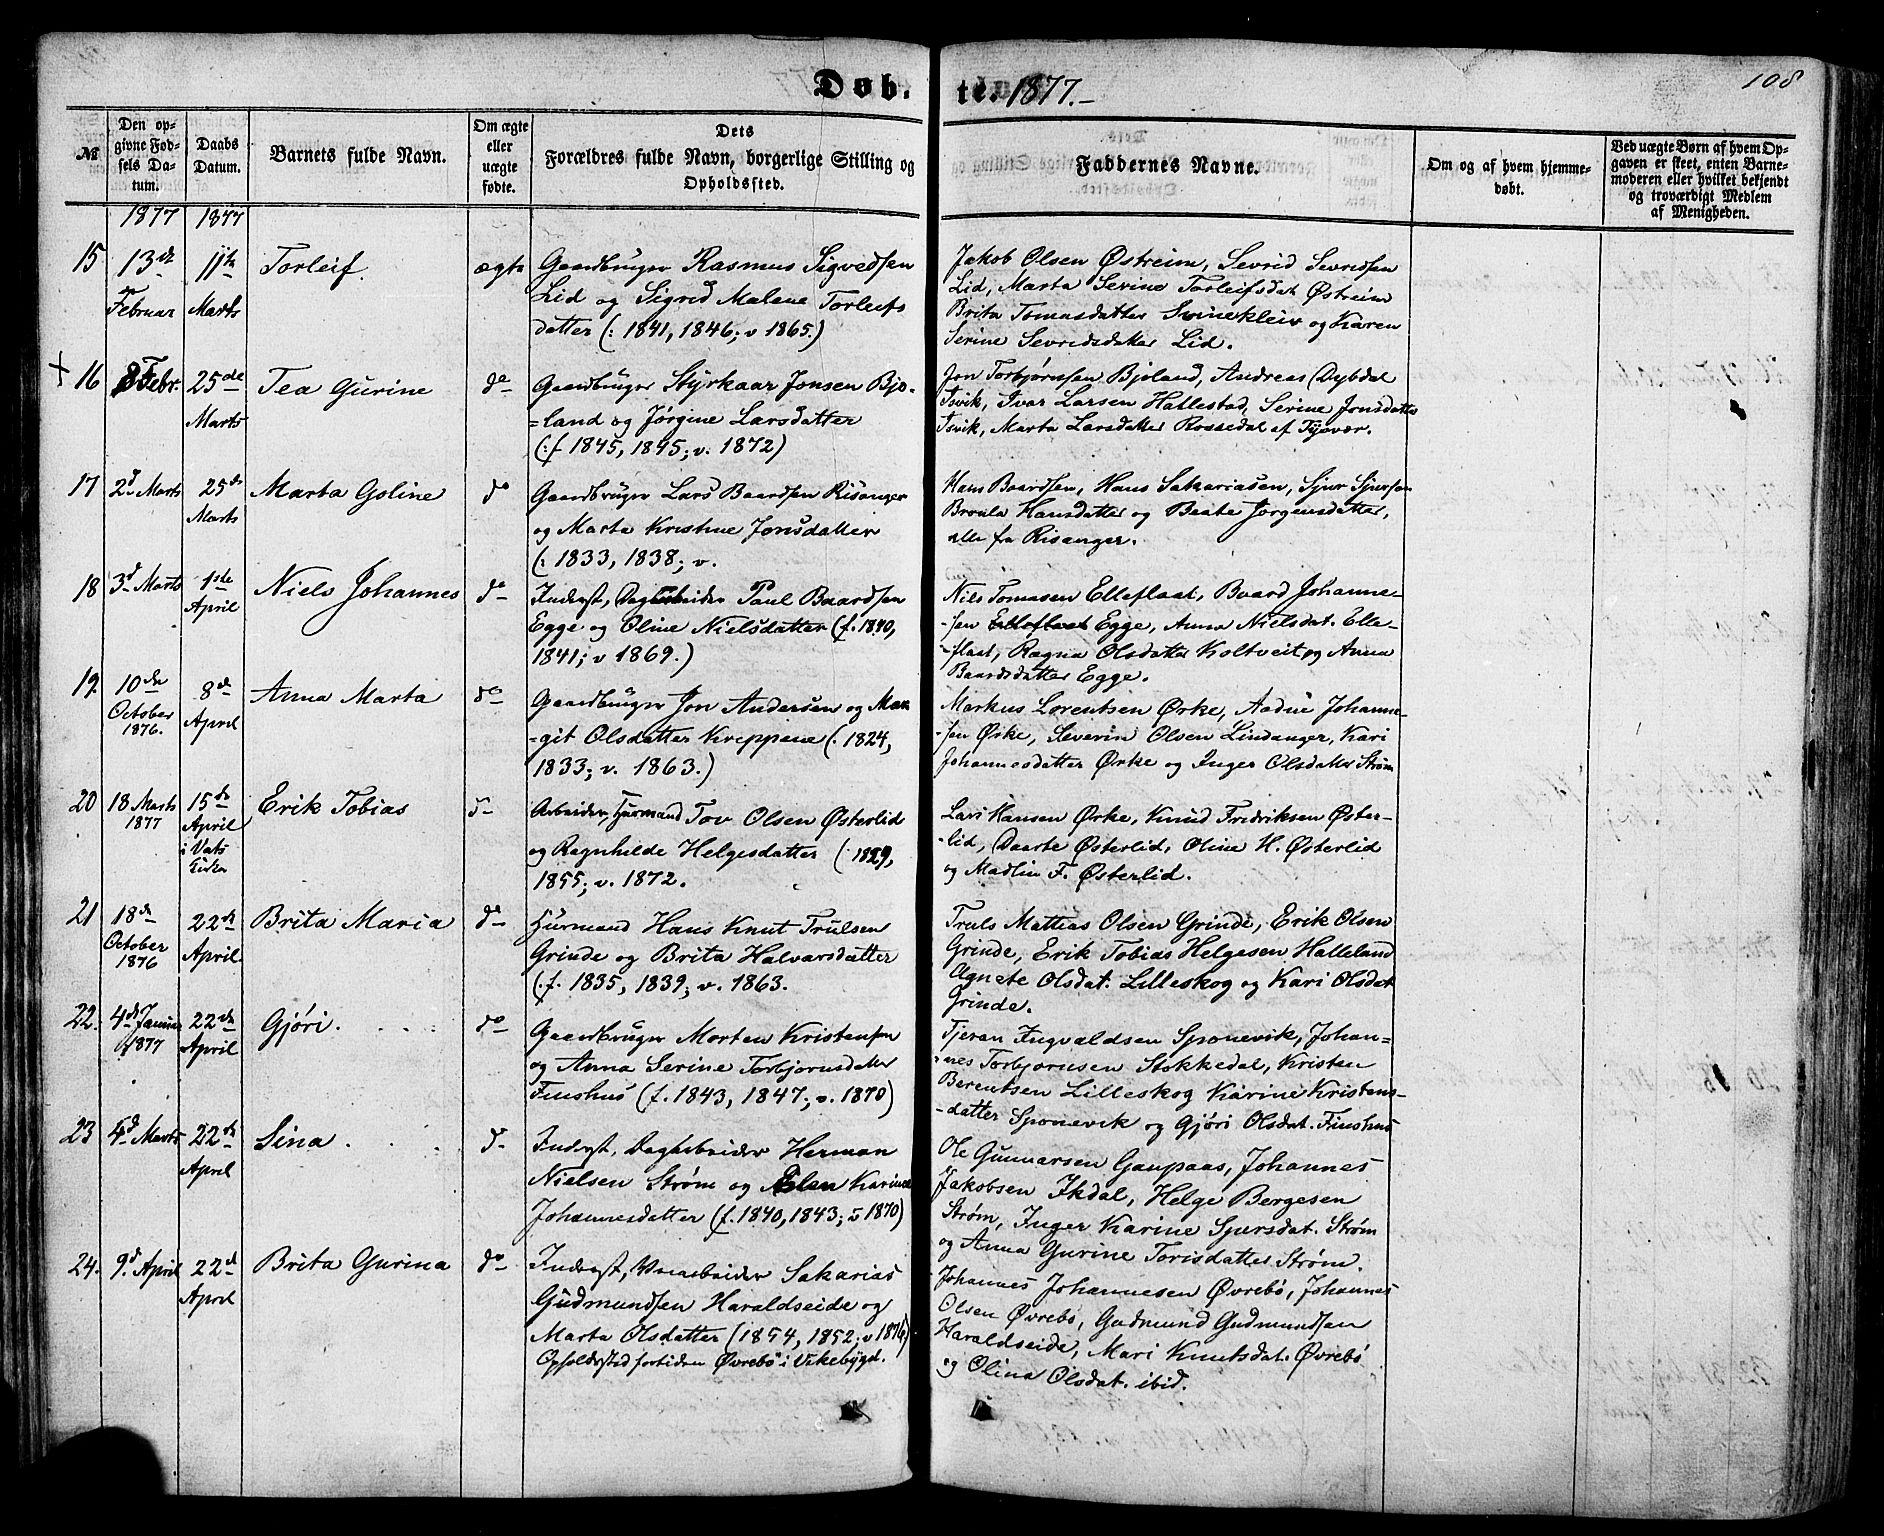 Døb. te. 1877.-
108
№
Den opgivne Fødsels Datum.
Daabs Datum.
Barnets fulde Navn.
Om ægte eller uægte fødte.
Dets Forældres fulde Navn, borgerlige Stilling og Opholdssted.
Faddernes Navne.
Om og af hvem hjemmedøbt.
Ved uægte Børn af hvem Opgaven er skeet, enten Barnemoderen eller hvilket bekjendt og troværdigt Medlem af Menigheden.
1877 1877
15 13de Februar 11te Marts Torleif. ægte
Gaardbruger Rasmus Sigvedsen
Lid og Sigrid Malene Torleifs
datter (: 1841, 1846; v 1865.)
Jakob Olsen Østreim, Sevrid Sevridsen
Lid, Marta Serine Torleifsdat Østreim
Brita Tomasdatter Svinekleiv og Karen
Serine Sevridsdatter Lid.
+ 16 8 Febr. 25de Marts Tea Gurine do
Gaardbruger Styrkaar Jonsen Bjo-
=land og Jørgine Larsdatter
(: f 1845, 1845; v. 1872)
Jon Torbjørnsen Bjoland, Andreas Dybdal
Isvik, Ivar Larsen Hallestad, Serine Jonsdatter
Isvik, Marta Larsdatter Rossedal af Tysvær.
17 2d Marts 25de Marts Marta Goline do
Gaardbruger Lars Baardsen Risanger
og Marta Kristine Jonsdatter
(: 1833, 1838; v.
Hans Baardsen, Hans Sakariasen, Sjur Sjursen
Broula Hansdatter og Beate Jørgensdatter,
alle fra Risanger.
18 3d Marts 1ste April Niels Johannes do
Inderst, Dagarbeider Paul Baardsen
Egge og Oline Nielsdatter (f. 1840,
1841; v 1869.)
Nils Tomasen Elleflaat, Baard Johanne-
-sen Elleflaat Egge, Anna Nielsdat. Elle-
flaat, Ragna Olsdatter Koltveit og Anna
Baardsdatter Egge.
19. 10de October 1876. 8de April Anna Marta do
Gaardbruger Jon Andersen og Mar
=git Olsdatter Kreppene (: 1824,
1833; v. 1863.)
Markus Lorentsen Ørke, Aadne Johanne-
-sen Ørke, Severin Olsen Lindanger, Kari
Johannesdatter Ørke og Inger Olsdatter Strøm
20 18 Marts 1877 15de April i Vats Kirken Erik Tobias do
Arbeider, Huurmand Tov Olsen Østerlid
og Ragnhilde Helgesdatter (: 1829,
1855; v. 1872.
Lars Hansen Ørke, Knud Fredriksen Øster-
-lid, Daarte Østerlid, Oline H. Østerlid
og Madlin F. Østerlid.
21 18de October 1876 22de April. Brita Maria do
Huurmand Hans Knut Trulsen
Grinde og Brita Halvarsdatter
(. f. 1835, 1839; v. 1863.
Truls Mathias Olsen Grinde, Erik Olsen
Grinde, Erik Tobias Helgesen Halleland
Agnete Olsdat. Lilleskog og Kari Olsdat
Grinde.
22. 4de Januar 1877 22de April Gjøri. do
Gaardbruger Morten Kristensen
og Anna Serine Torbjørnsdatter
Finshus (f. 1843, 1847; v. 1870)
Tjeran Ingvaldsen Sponevik, Johan-
-nes Torbjørnsen Stokkedal, Kristen
Berentsen Lilleskog Karine Kristens-
-datter Sponevik og Gjøri Olsdat. Finshus
23 4d Marts 22de April Lina. do
Inderst, Dagarbeider Herman
Nielsen Strøm og Elen Karine
Johannesdatter (f. 1840, 1843; v 1870)
Ole Gunnarsen Gaupaas, Johannes
Jakobsen Ikdal, Helge Bergesen
Strøm, Inger Karine Sjursdat. Strøm
og Anna Gurine Torisdatter Strøm.
24. 9d April 22d April Brita Gurina do
Inderst, Veiarbeider Sakarias
Gudmundsen Haraldseide og
Marta Olsdatter (1854, 1852; v 1876)
Opholdssted fortiden Øvrebø i Vikebygd.
Johannes Johannesen Øvrebø, Johannes
Olsen Øvrebø, Gudmund Gudmundsen
Haraldseide, Mari Knutsdat. Øvrebø
og Olina Olsdat. ibid.